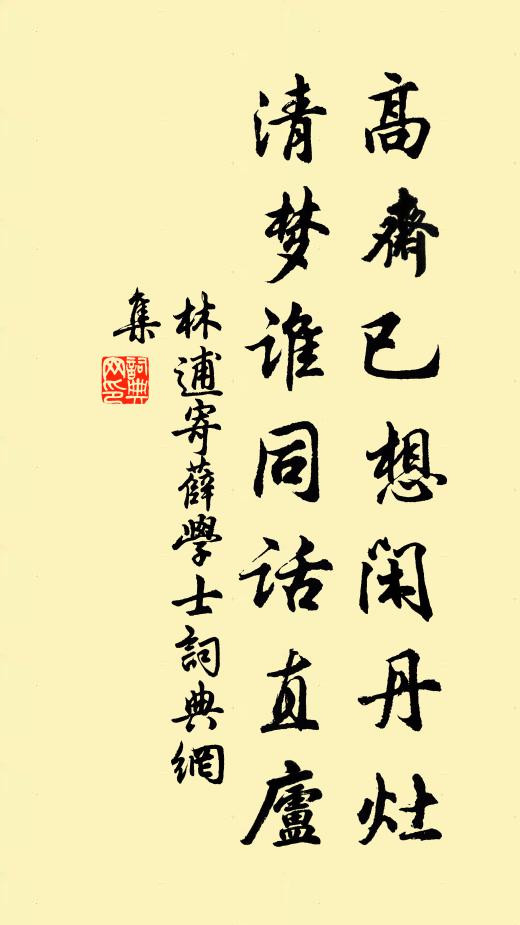 高齋已想閑丹灶
清梦谁同话直廬
林逋寄薛學士詞典網
集
詞典网印